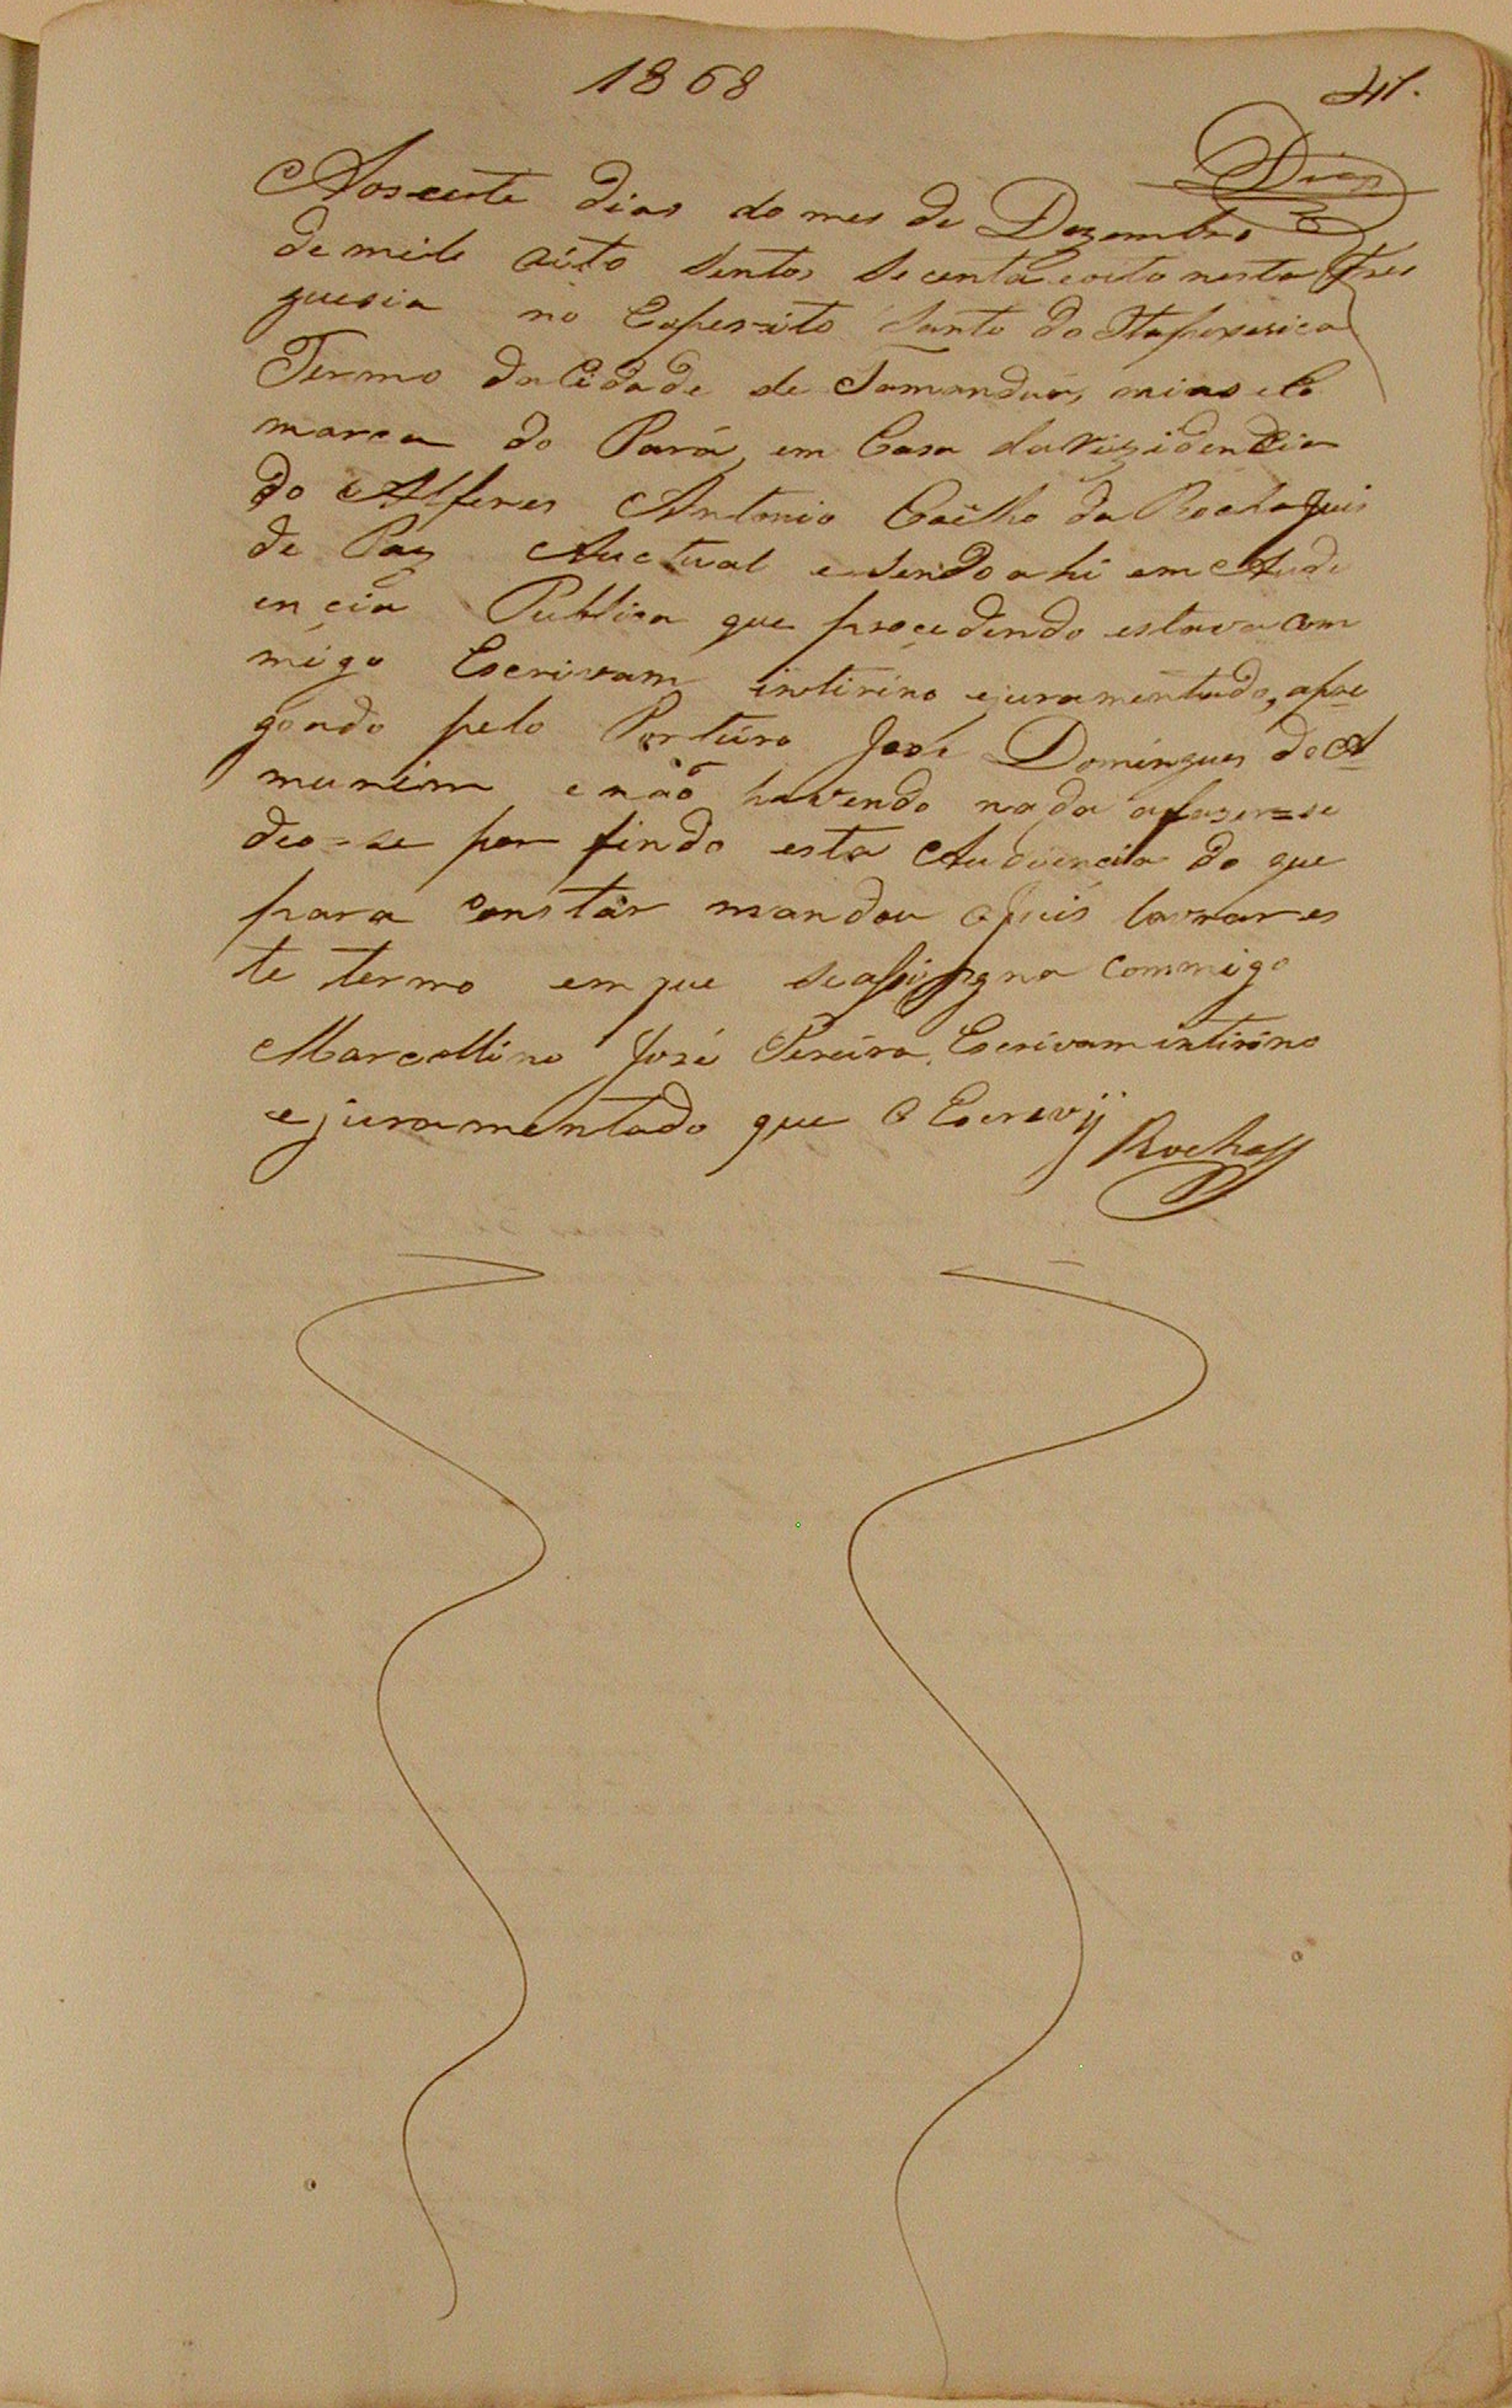 1868
41.
Dias
Aos cete dias do mes de Dezembro
de mile oito sentos secenta e oito nesta Fre
guesia no Esperito Santo do Itapecerica
Termo da Cidade de Tamanduá, minas e Co
marca do Pará, em Casa da Rizidencia
do Alferes Antonio Coêlho da Rocha Juis
de Paz Auctual e sendo ahi em Audi
encia Publica que procedendo estava com
migo Escrivam intirino ejuramentado, apre
goado pelo Porteiro José Domingues de A
murim e não havendo nada afaser=se
deo=se por findo esta Audiencia do que
para constár mandou o Juis lavrar es
te termo em que se assigna commigo
Marcollino José Pereira, Escrivam intirino
e juramentado que o Escrevy
Rocha